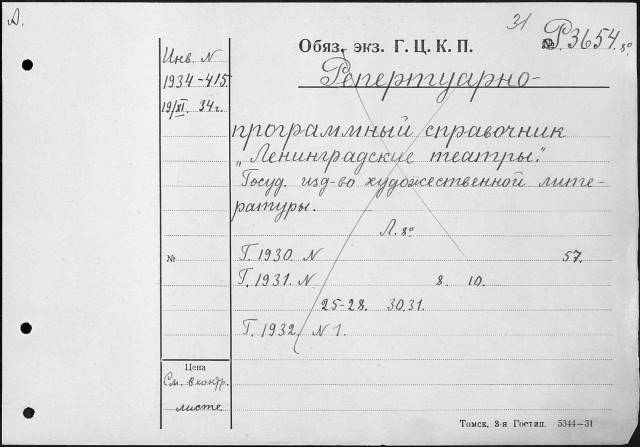 Д.
31
Обяз. экз. Г. Ц. К. П.
№ Р.3654.8°
Инв. N
1934-415.
19/XI. 34 г.
Репертуарно-
программный справочник
„Ленинградские театры."
Госуд. изд-во художественной лите-
ратуры.
Л. 8°
Г. 1930. N 57.
№
Г. 1931. N 8. 10.
25-28. 30.31.
Г. 1932. N 1.
Цена
См. в контр.
листе.
Томск, 3-я Гостип. 5344—31